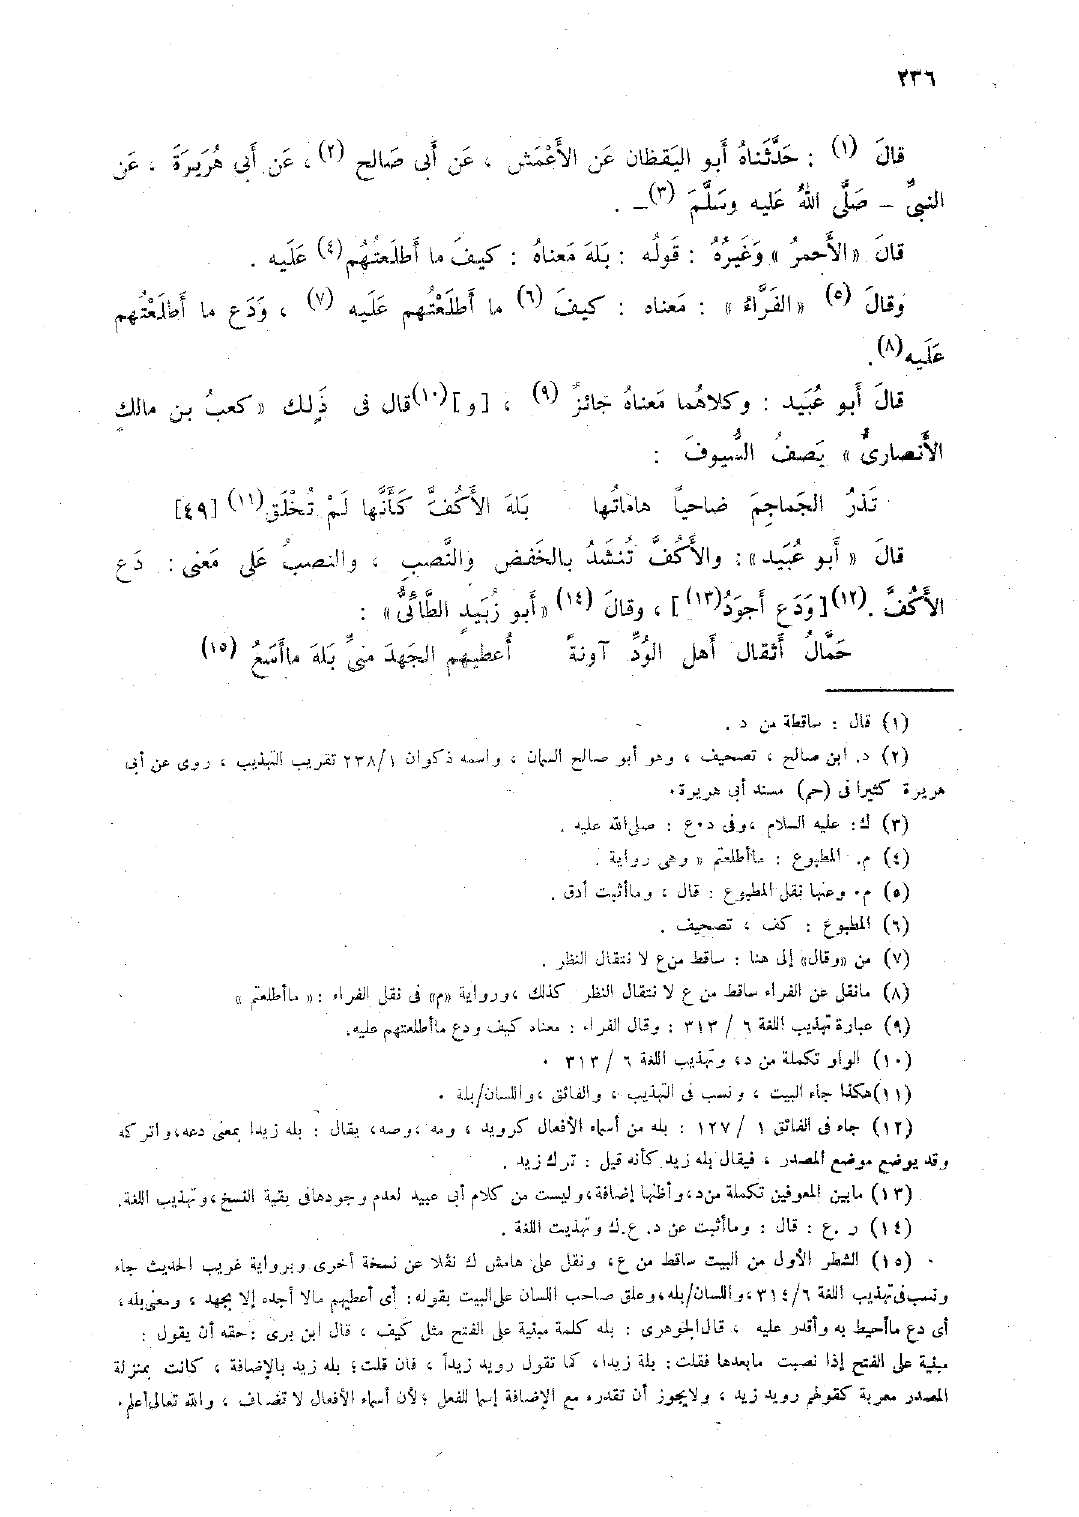 ٢٣٦
قالَ (١) : حَدَّثَناهُ أبو اليَقظان عَن الأَعْمَش ، عَن أَبى صَالح (٢) ، عَن أَبى هُرَيرَةَ ، عَن
النبىِّ – صَلَّى اللهُ عَليه وسَلَّمَ (٣) – .
قالَ «الأَحمرُ» وَغَيرُهُ : قَولُه : بَلهَ مَعناهُ : كيفَ ما أَطلَعتُهُم (٤) عَلَيه .
وَقالَ (٥) «الفَرَّاءُ» : مَعناه : كيفَ (٦) ما أَطلَعْتُهم عَلَيه (٧) ، وَدَع ما أَطلَعْتُهم
عَلَيه (٨) .
قالَ أَبو عُبَيد : وكلاهُما مَعناهُ جَائزٌ (٩) ، [و] (١٠) قال فى ذَلِك «كعبُ بن مالكٍ
الأَنصارىُّ» يَصفُ السُّيوفَ :
تَذرُ الجَماجِمَ ضاحياً هاماتُها بَلهَ الأَكُفَّ كَأَنَّها لَمْ تُخْلَقِ (١١) [٤٩]
قالَ «أَبو عُبَيد» : والأَكُفَّ تُنشَدُ بالخَفض والنَّصبِ ، والنصبُ عَلى مَعنى : دَع
الأَكُفَّ . (١٢) [وَدَع أَجوَدُ (١٣)] ، وقالَ (١٤) «أَبو زُبَيدٍ الطَّائىُّ» :
حَمَّالُ أَثقال أَهل الوُدِّ آونةً أُعطيهم الجَهدَ منىِّ بَلهَ ماأَسَعُ (١٥)
(١) قال : ساقطة من د .
(٢) د. ابن صالح ، تصحيف ، وهو أبو صالح السمان ، واسمه ذكوان ٢٣٨/١ تقريب التهذيب ، روى عن أبى
هريرة كثيرا فى (حم) مسند أبى هريرة .
(٣) ك: عليه السلام ،وفى د.ع : صلى الله عليه .
(٤) م. المطبوع : ماأطلعتم « وهى رواية .
(٥) م. وعنها نقل المطبوع : قال ، وماأثبت أدق .
(٦) المطبوع : كف ، تصحيف .
(٧) من «وقال» إلى هنا : ساقط من ع لا نتقال النظر .
(٨) مانقل عن الفراء ساقط من ع لا نتقال النظر كذلك ،ورواية «م» فى نقل الفراء : « ماأطلعتم »
(٩) عبارة تهذيب اللغة ٦ / ٣١٣ : وقال الفراء : معناه كيف ودع ماأطلعتهم عليه.
(١٠) الواو تكملة من د، وتهذيب اللغة ٦ / ٣١٣ .
(١١) هكذا جاء البيت ، ونسب فى التهذيب ، والفائق ،واللسان/بله .
(١٢) جاء فى الفائق ١ / ١٢٧ : بله من أسماء الأفعال كرويد ، ومه ،وصه، يقال : بله زيدا بمعنى دعه،واتركه
وقد يوضع موضع المصدر ، فيقال بله زيد كأنه قيل : ترك زيد .
(١٣) مابين المعوفين تكملة من د،وأظنها إضافة،وليست من كلام أبى عبيد لعدم وجودها فى بقية النسخ،وتهذيب اللغة.
(١٤) ر .ع : قال : وماأثبت عن د. ع.ك وتهذيت اللغة .
(١٥) الشطر الأول من البيت ساقط من ع، ونقل على هامش ك نقلا عن نسخة أخرى وبرواية غريب الحديث جاء
ونسب فى تهذيب اللغة ٣١٤/٦،واللسان/بله،وعلق صاحب اللسان على البيت بقوله: أى أعطيهم مالا أجده إلا بجهد ، ومعنى بله،
أى دع ماأحيط به وأقدر عليه ، قال الجوهرى : بله كلمة مبنية على الفتح مثل كيف ، قال ابن برى :حقه أن يقول :
مبنية على الفتح إذا نصبت مابعدها فقلت: بلة زيدا، كما تقول رويد زيداً ، فان قلت؛ بله زيد بالإضافة ، كانت بمنزلة
المصدر معربة كقولهم رويد زيد ، ولايجوز أن تقدره مع الإضافة إسما للفعل ؛لأن أسماء الأفعال لا تضاف ، والله تعالى أعلم.